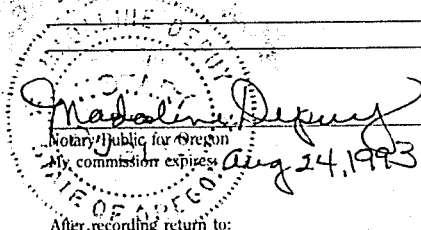 Madaline Depuy
Notary Public for Oregon
My commission expires: Aug 24, 1993
STATE OF OREGON
After recording return to: